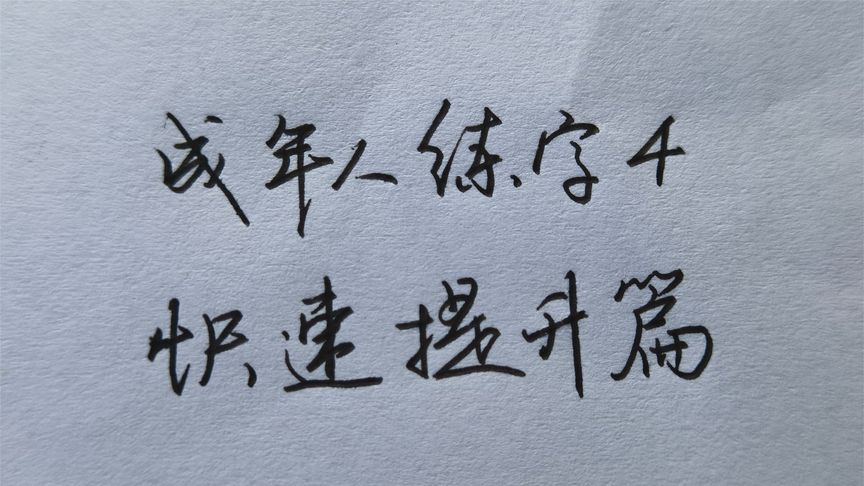 成年人练字4
快速提升篇